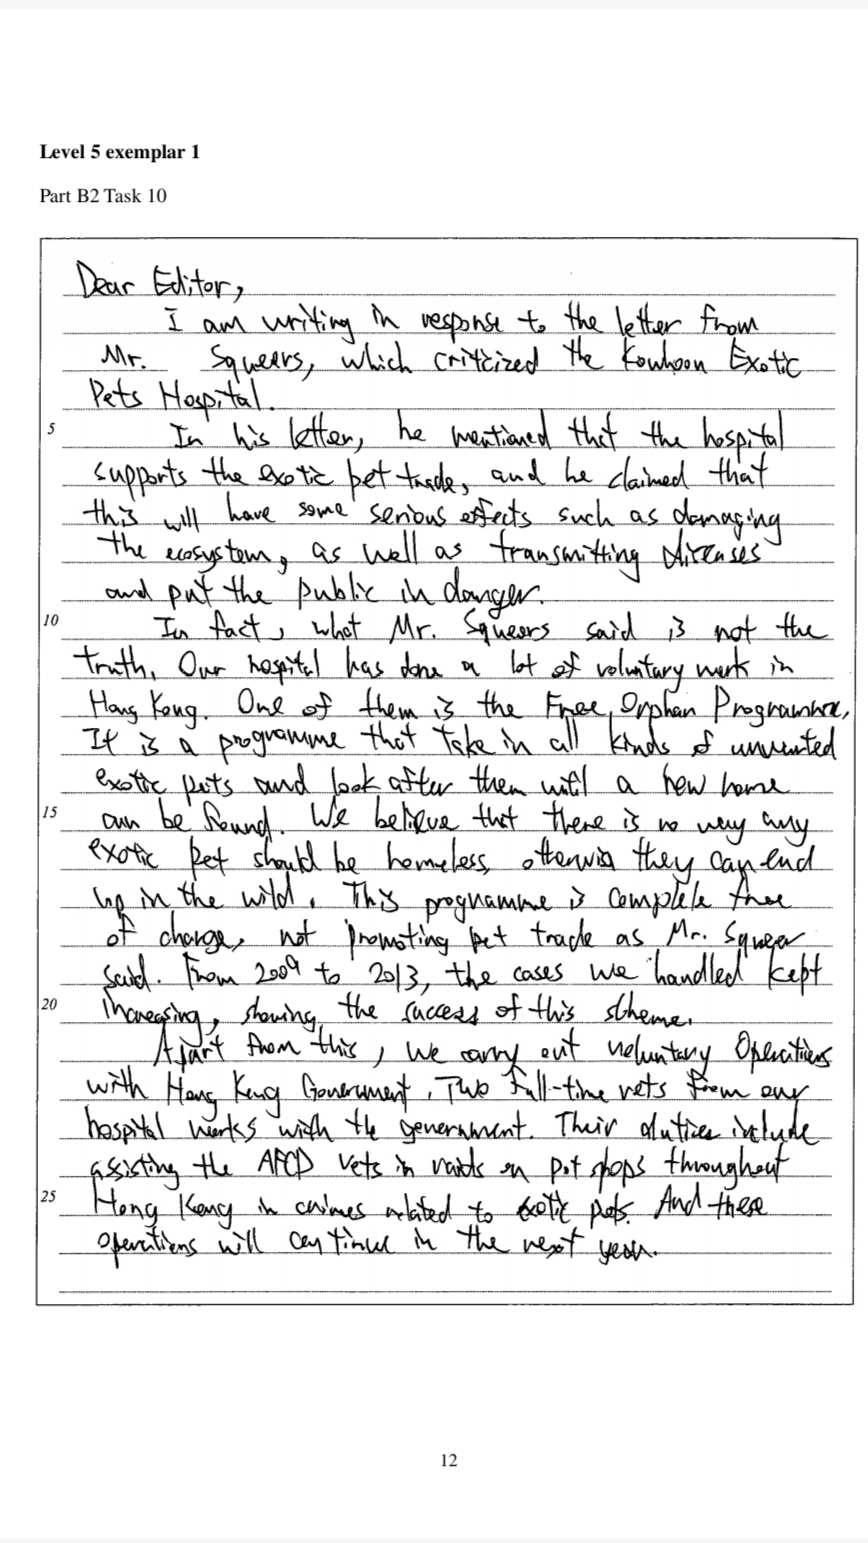 Level 5 exemplar 1
Part B2 Task 10
Dear Editor,
I am writing in response to the letter from
Mr. Squeers, which criticized the Kowloon Exotic
Pets Hospital.
5
In his letter, he mentioned that the hospital
supports the exotic pet trade, and he claimed that
this will have some serious effects such as damaging
the ecosystem, as well as transmitting diseases
and put the public in danger.
10
In fact, what Mr. Squeers said is not the
truth. Our hospital has done a lot of voluntary work in
Hong Kong. One of them is the Free Orphan Programme,
It is a programme that take in all kinds of unwanted
exotic pets and look after them until a new home
15
can be found. We believe that there is no way any
exotic pet should be homeless, otherwise they can end
up in the wild. This programme is complete free
of charge, not promoting pet trade as Mr. Squeer
said. From 2009 to 2013, the cases we handled kept
20
increasing, showing the success of this scheme.
Apart from this, we carry out voluntary Operations
with Hong Kong Government. Two full-time vets from our
hospital works with the government. Their duties include
assisting the AFCD vets in raids on pet shops throughout
25
Hong Kong in crimes related to exotic pets. And these
operations will continue in the next year.
12